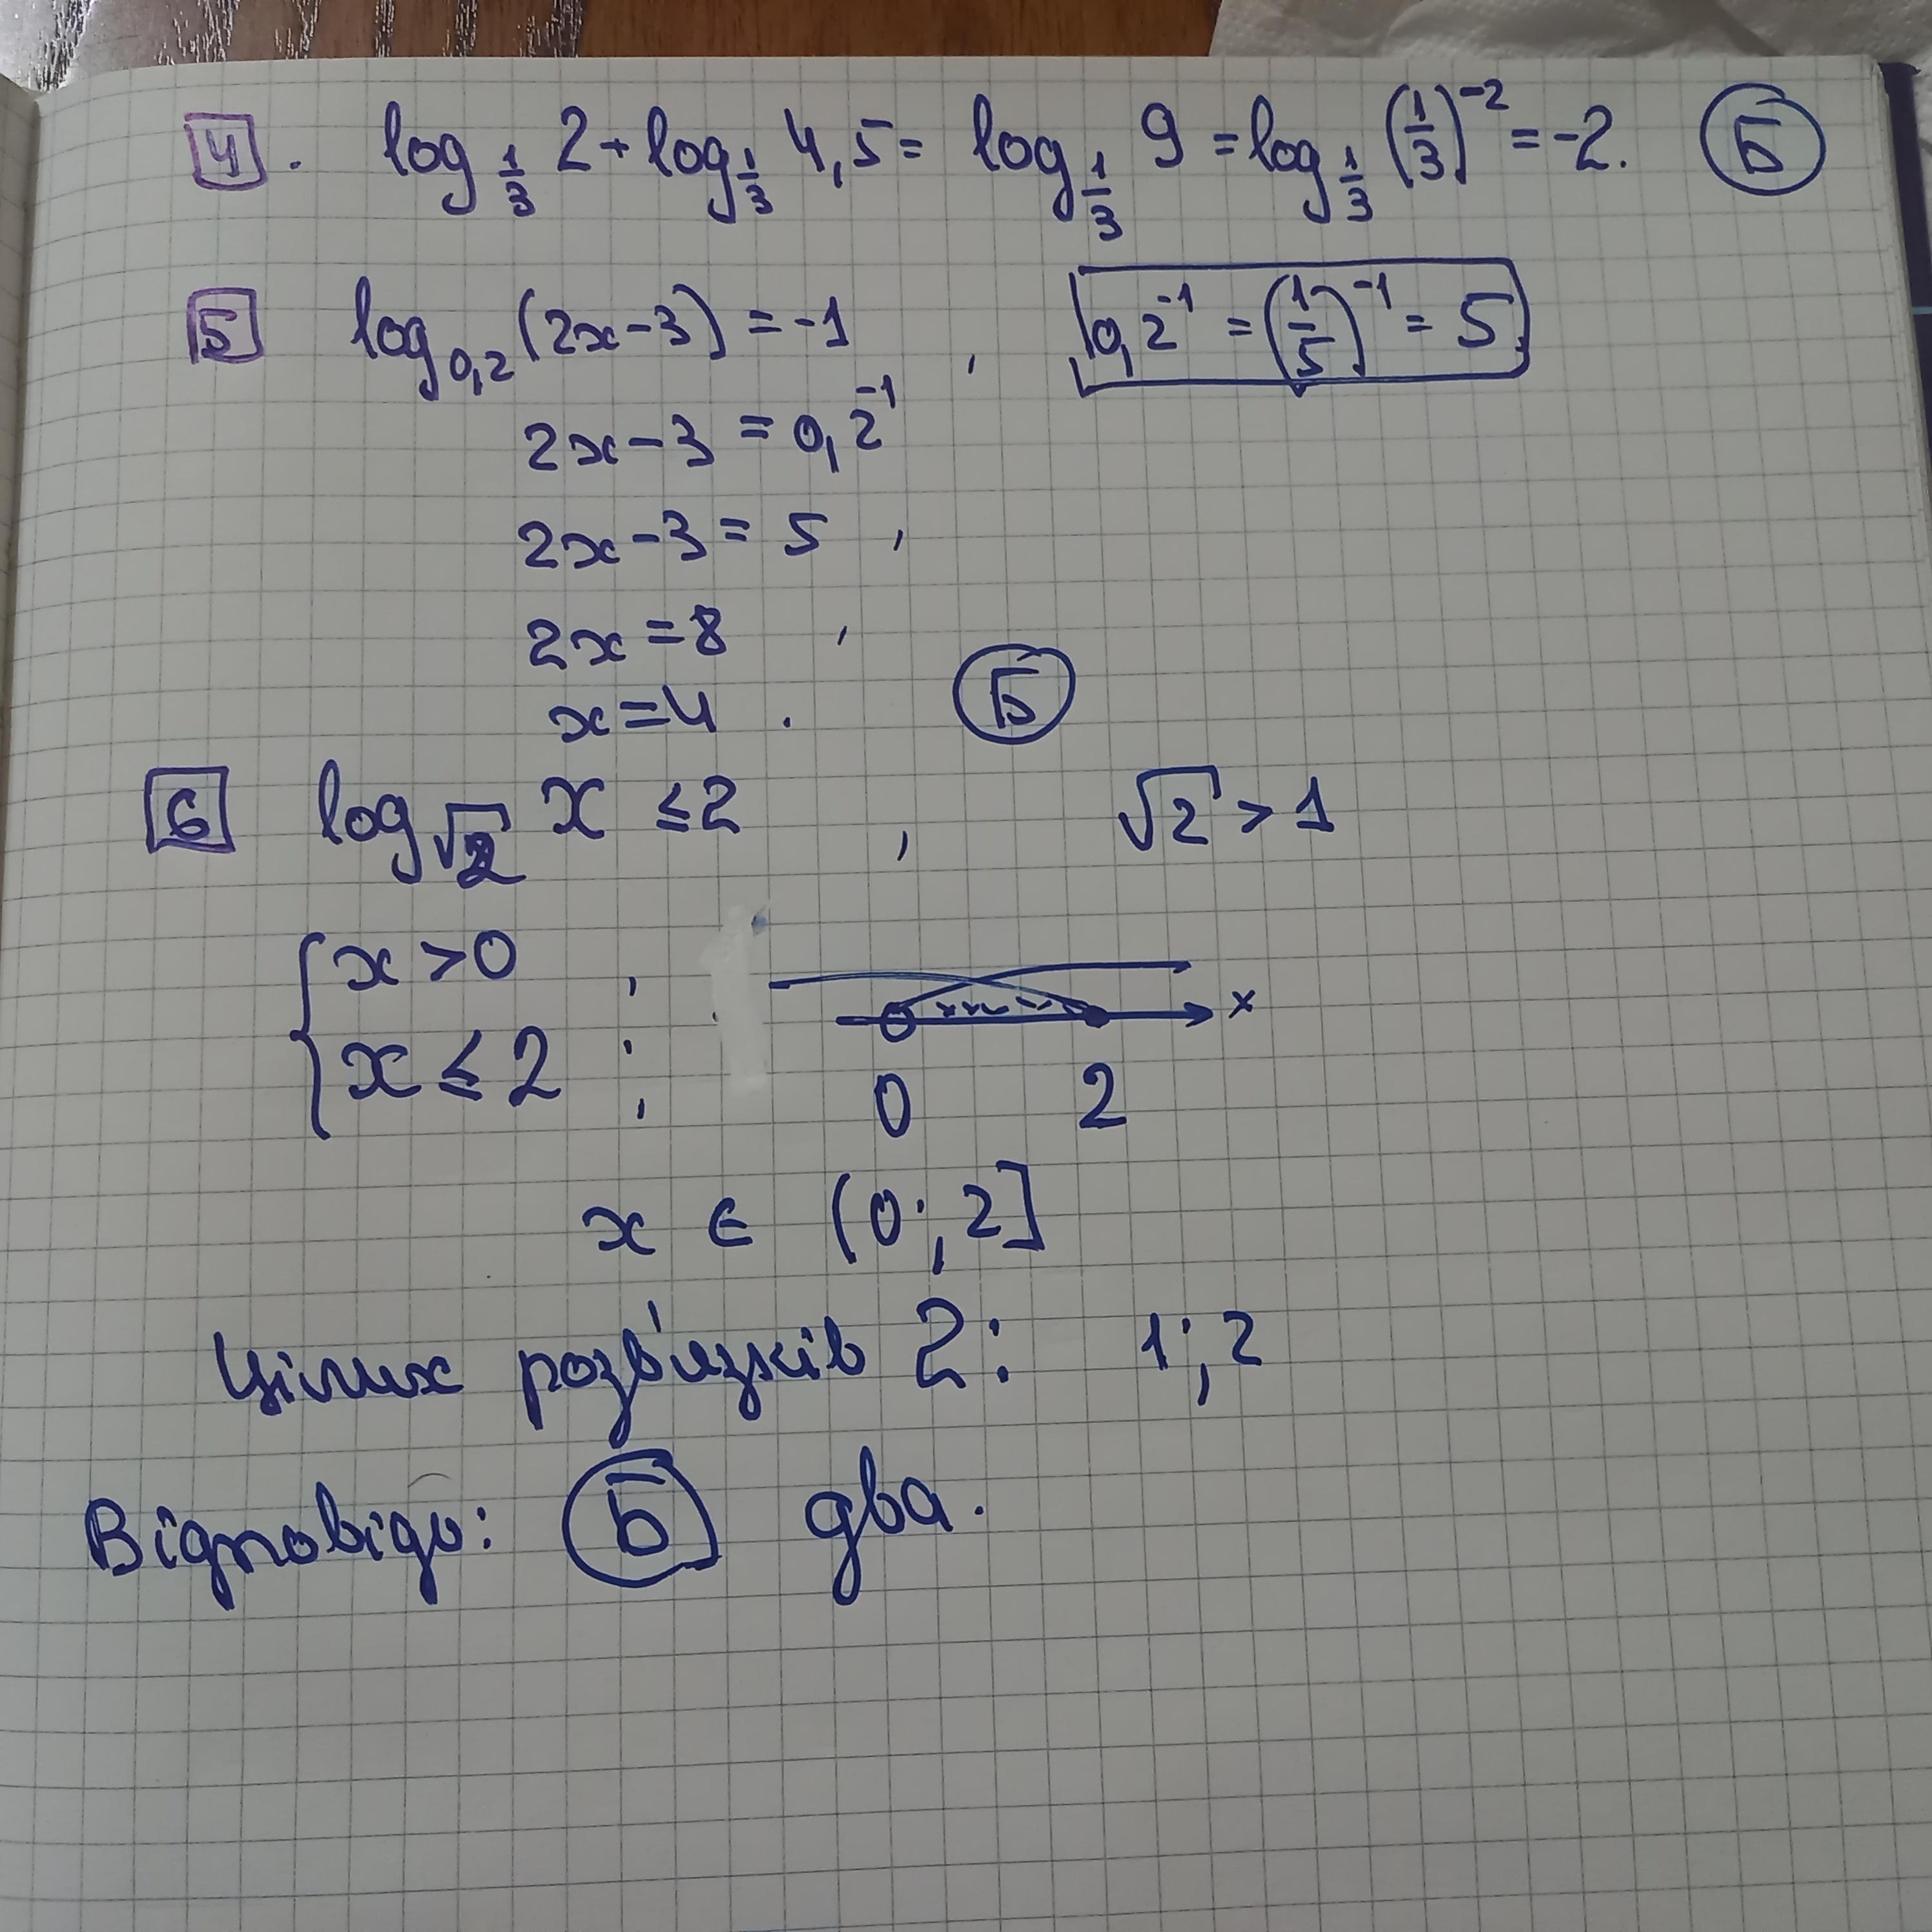 4. log_{1/3} 2 + log_{1/3} 4,5 = log_{1/3} 9 = log_{1/3} (1/3)^{-2} = -2. Б
5 log_{0,2} (2x-3) = -1 , 0,2^{-1} = (1/5)^{-1} = 5
2x-3 = 0,2^{-1}
2x-3 = 5 ,
2x = 8 ,
x = 4 . Б
6 log_{√2} x ≤ 2 , √2 > 1
{ x > 0 ;
x ≤ 2 ; x
0 2
x ∈ (0; 2]
Цілих розв'язків 2: 1; 2
Відповідь: Б два.